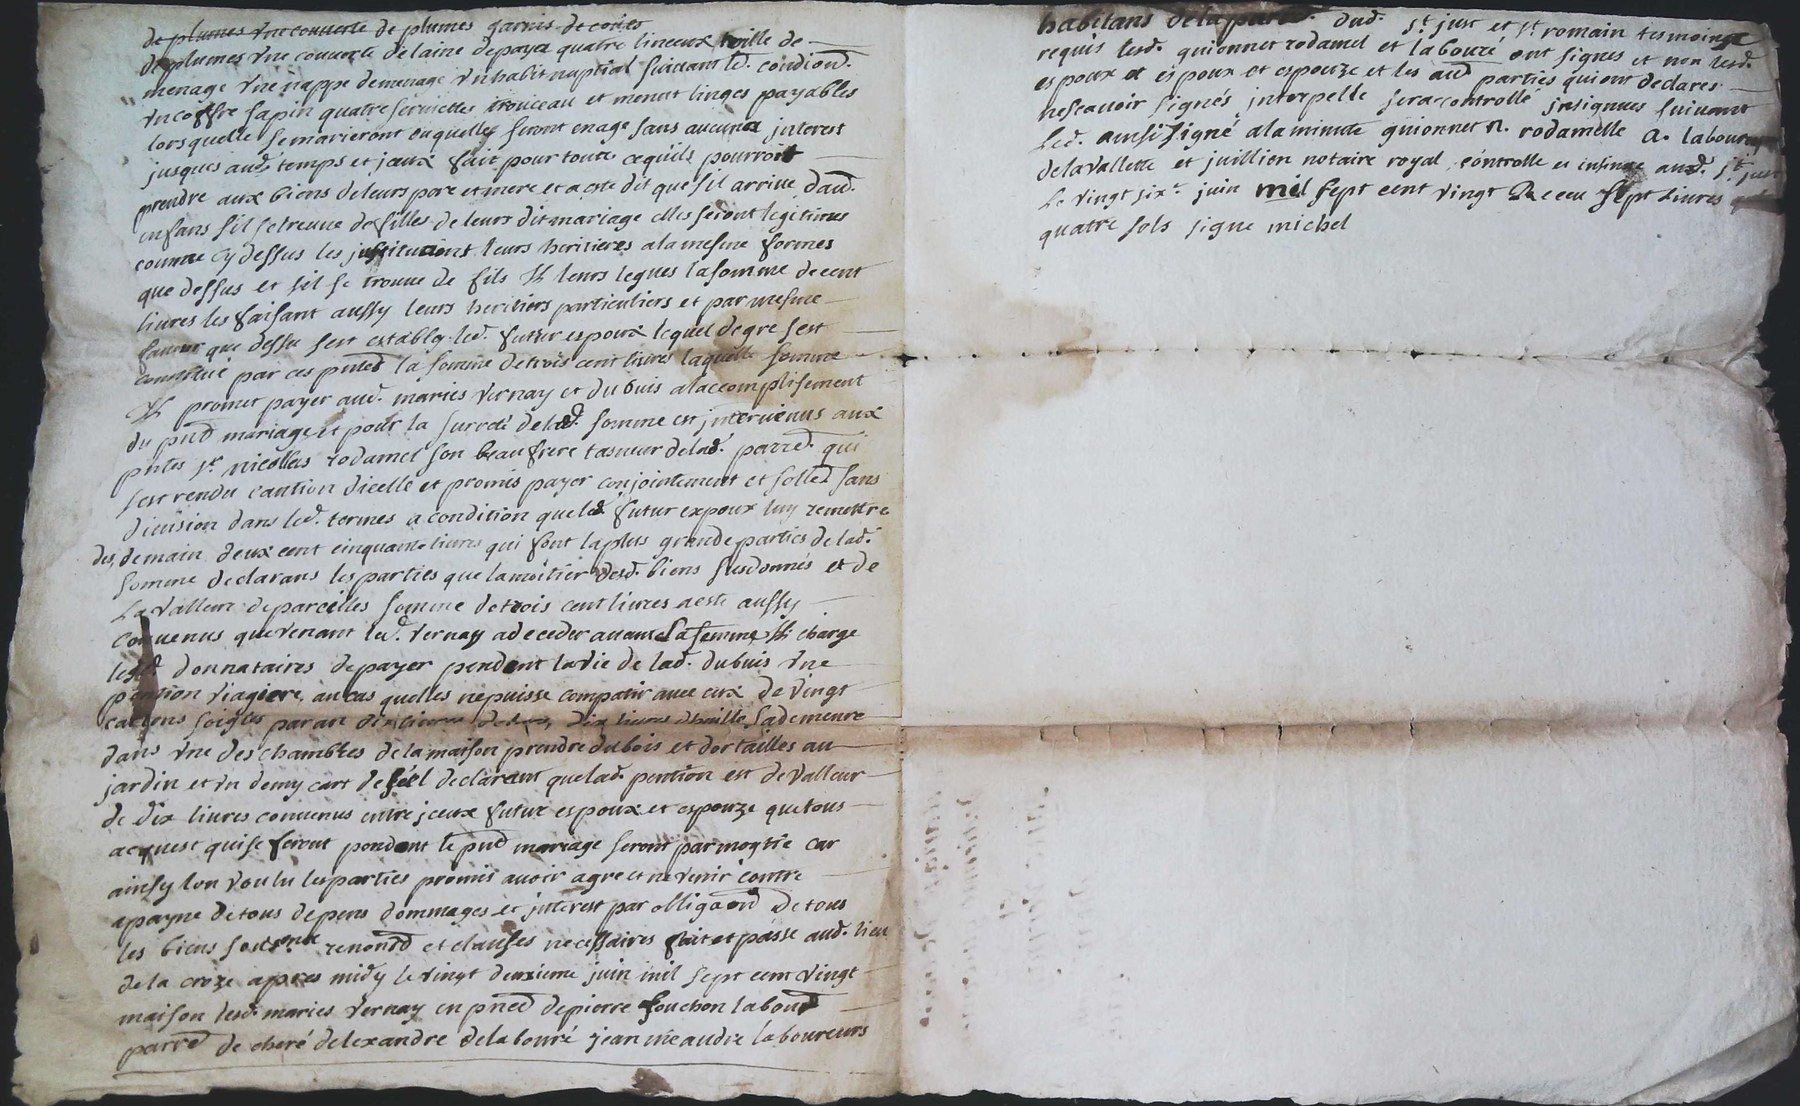 de plumes vne couuerte de plumes garnis de coites
de plumes vne couuerte de laine de paya quatre linceux toille de
menage vne nappe de menage vn habit nuptial suiuant led. condiond.
vn coffre sapin quatre seruiettes trouceau et menut linges payables
lorsquelle se marieront ou quelles seront en age sans aucuns jnterest
jusques aud. temps et jceux fait pour toute ce quils pourroit
prendre aux biens de leurs pere et mere et a este dit que sil arriue daud.
enfans sil se treuue de filles de leurs dit mariage elles seront legitimes
comme cy dessus les jnstituerons leurs heritieres a la mesme formes
que dessus et sil se trouue de fils Jl leurs legues la somme de cent
liures les faisant aussy leurs heritiers particuliers et par mesme
faueur que dessu sest estably led. futur espoux lequel de gre sest
constitué par ces pntes la somme de trois cent liures laquelle somme
Jl promet payer aud. maries vernay et dubuis a laccomplisement
du pnt mariage et pour la sureté de lad. somme est jnteruenus aux
pntes sr. nicollas rodamel son beau frere tasneur de lad. parre. qui
sest rendu caution dicelle et promis payer conjointement et solled sans
diuision dans led. termes a condition que led. futur expoux luy remettre
des demain deux cent cinquante liures qui sont la plus grande parties de lad.
somme declarans les parties que la moitier desd. biens susdonnés et de
La valleur de parceilles somme de trois cent liures a este aussy
conuenus que venant led. vernay a deceder auant La femme Jl charge
lesd. donnataires de payer pendent la vie de lad. dubuis vne
pention viagiere au cas quelles ne puisse compatir auec eux de vingt
cartons soigles par an dix liures dhuille sa demeure
dans vne des chambres de la maison prendre du bois et dortailles au
jardin et vn demy cart de sel declarant que lad. pention est de valleur
de dix liures conuenus entre jceux futur espoux et espouze que tous
acquest qui se feront pendent le pnt mariage seront par moytié car
ainsy lon voulu les parties promis auoir agre et ne venir contre
a payne de tous depens dommages et jnterest par obligaond de tous
les biens renond et clauses necessaires fait et passe aud. lieu
de la croze apres midy le vingt deuxieme juin mil sept cent vingt
maison lesd. maries vernay en pnce de pierre fouchon labour
parre de cheré delexandre de labouré jean meandre laboureurs
habitans de la dud. st. just et st. romain tesmoings
requis lesd. guionnet rodamel et labouré ont signes et non lesd.
espoux et espoux et espouze et les aud parties qui ont declares
ne scauoir signés jnterpelle sera controllé jnsignues suiuant
Led. ainsi signé a la minute guionnet n. rodamelle a. laboure
de la vallette et juillien notaire royal, controlle et insinué aud. st. just
Le vingt six.e juin mil sept cent vingt Receu sept Liures
quatre sols signe michel